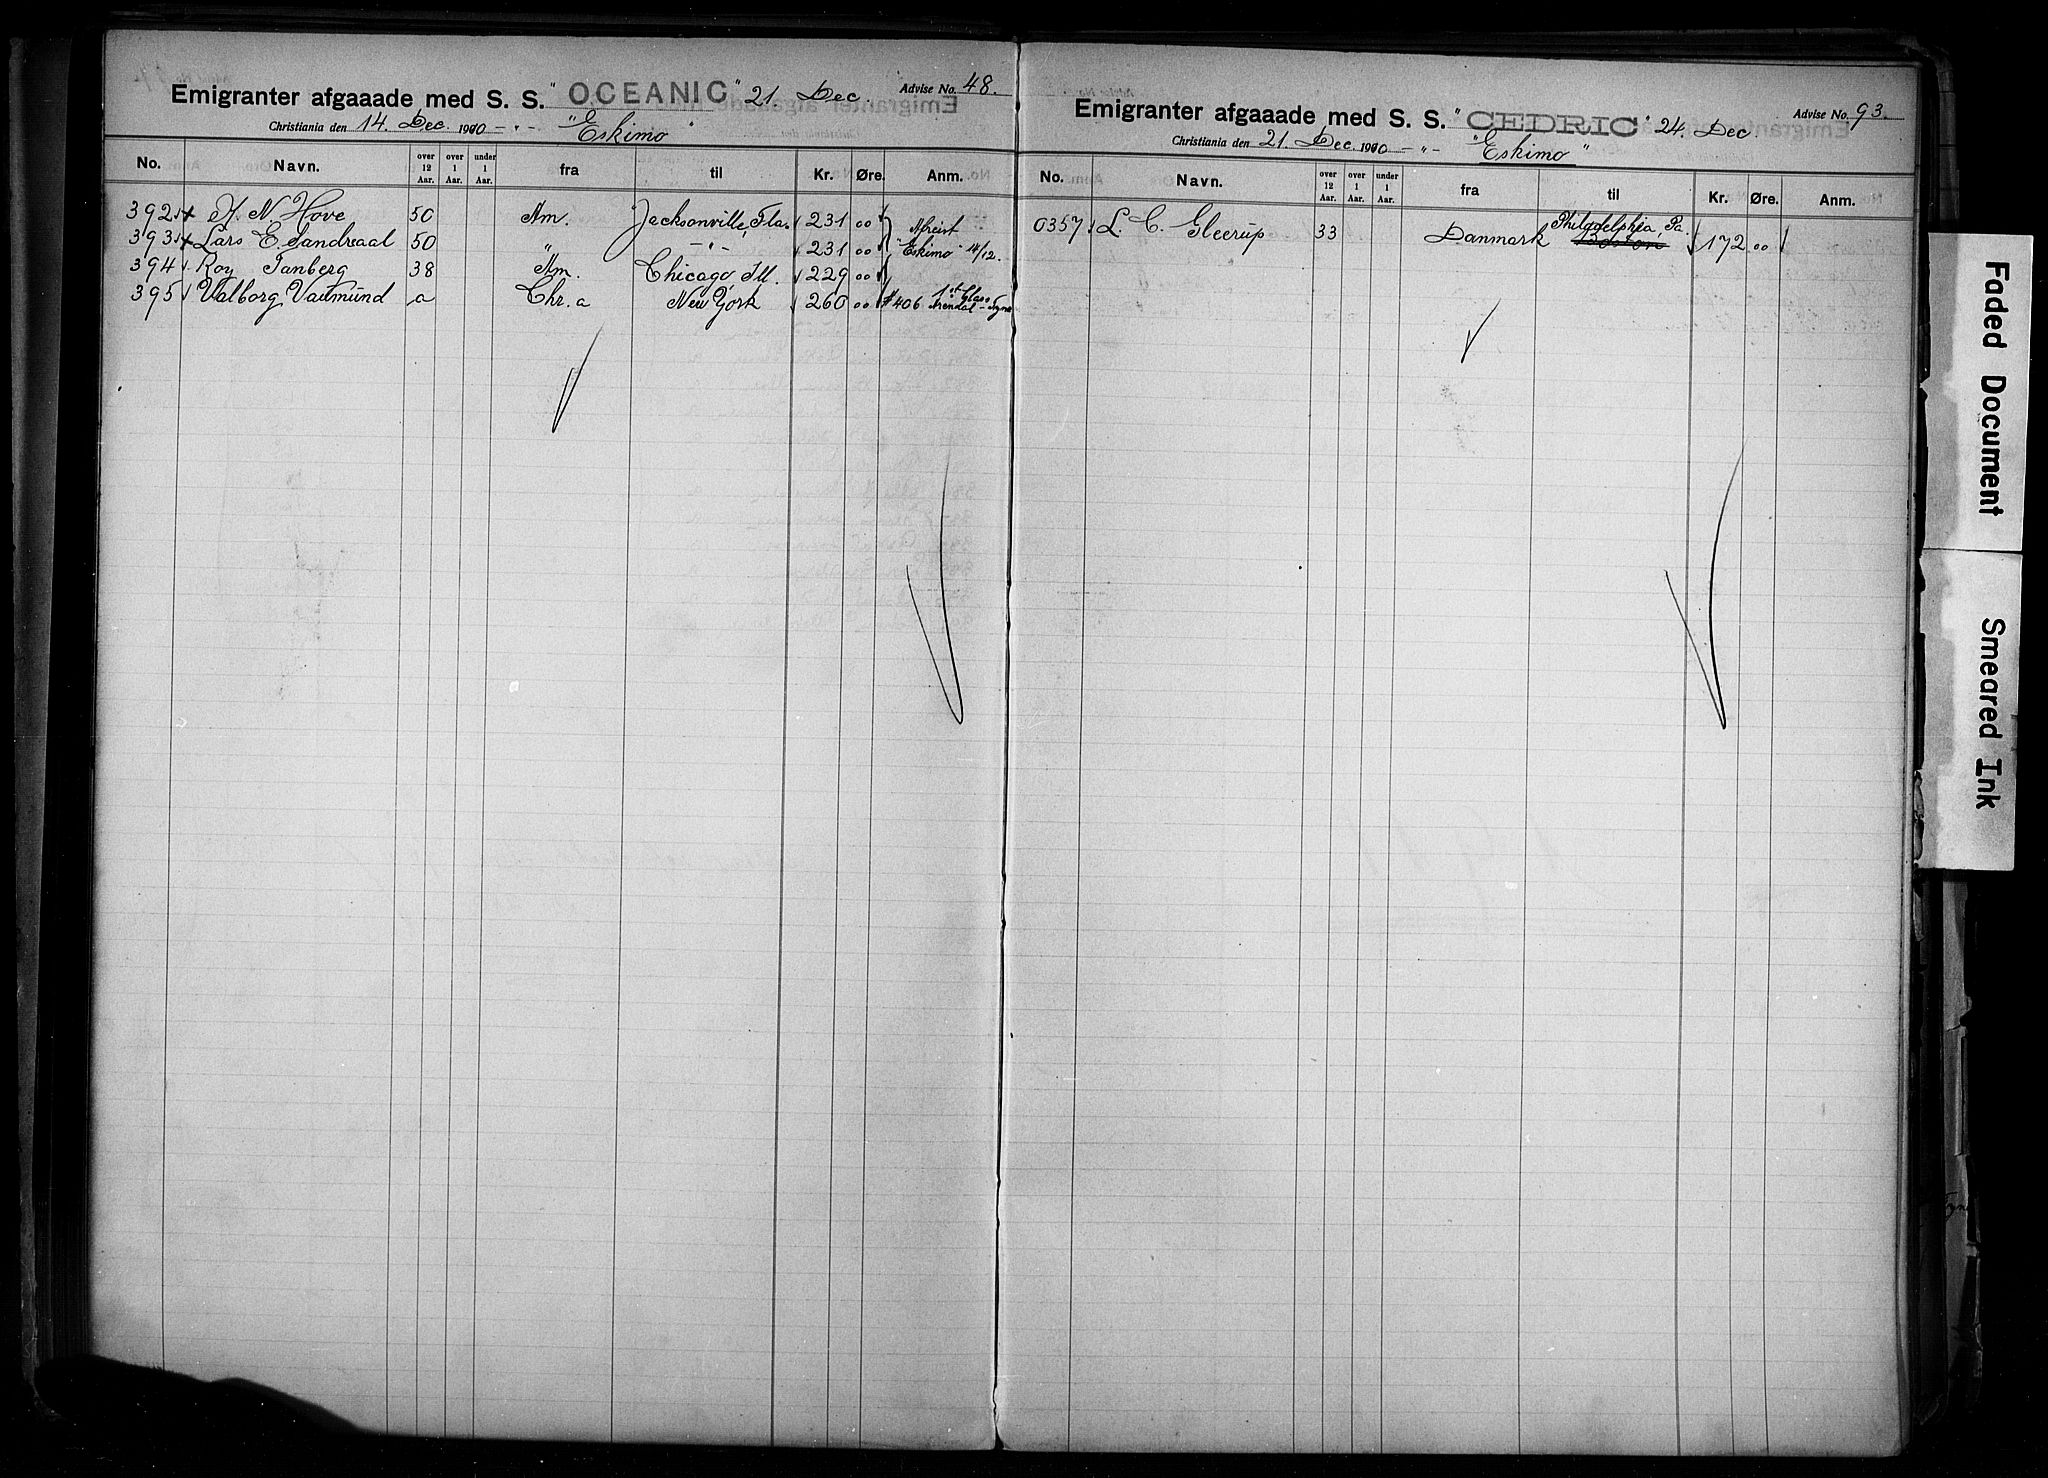 Emigranter afgaaade med S. S. "OCEANIC" 21 Dec Advise No. 48.
Christiania den 14. Dec. 1910 - " - "Eskimo"
No. Navn. over 12 Aar. over 1 Aar. under 1 Aar. fra til Kr. Øre. Anm.
392 N. Hove 50 Am. Jacksonville, Fla. 231 00 Afreist
393 Lars E. Sandraal 50 " - " - 231 00 "Eskimo" 14/12.
394 Roy Tanberg 38 Am. Chicago, Ill. 229 00
395 Valborg Vadmund a Chr. a New York 260 00 # 406 1st Class Arendal - Tyne
Emigranter afgaaade med S. S. "CEDRIC" 24. Dec Advise No. 93.
Christiania den 21. Dec. 1910 - " - "Eskimo"
No. Navn. over 12 Aar. over 1 Aar. under 1 Aar. fra til Kr. Øre. Anm.
0357 L. C. Gleerup 33 Danmark Philadelphia, Pa. Boston 172 00
Faded Document
Smeared Ink